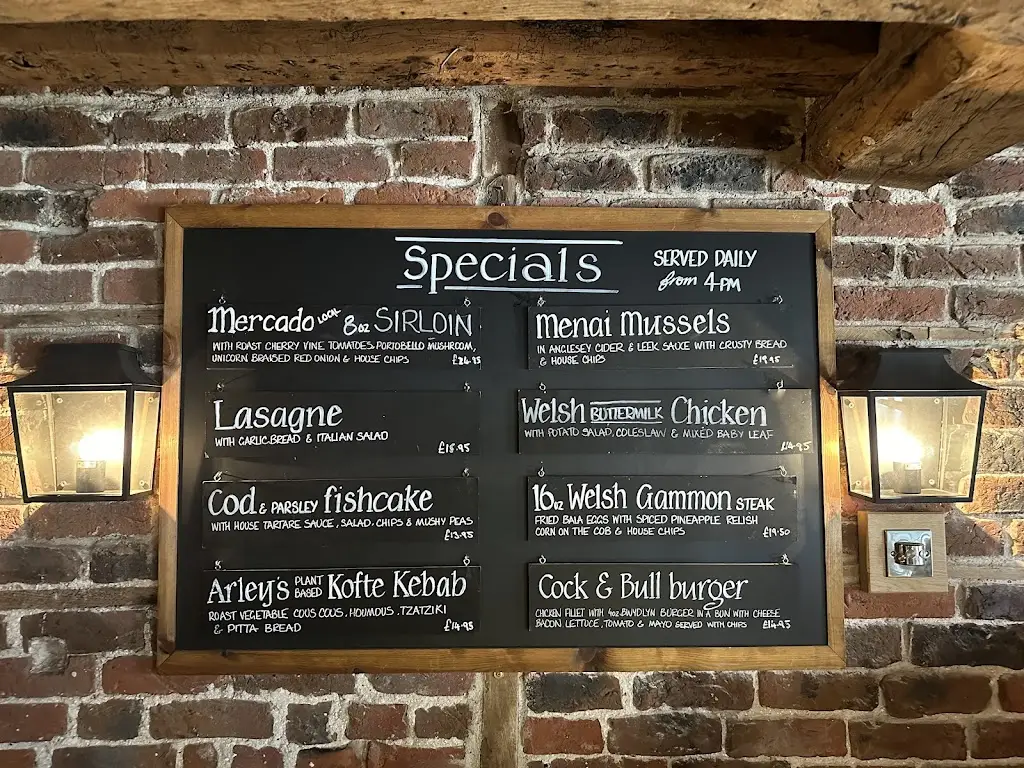 Specials
SERVED DAILY
from 4PM
Mercado LOCAL 8oz SIRLOIN
WITH ROAST CHERRY VINE TOMATOES, PORTOBELLO MUSHROOM,
UNICORN BRAISED RED ONION & HOUSE CHIPS
£24.95
Lasagne
WITH GARLIC BREAD & ITALIAN SALAD
£15.95
Cod & PARSLEY fishcake
WITH HOUSE TARTARE SAUCE, SALAD, CHIPS & MUSHY PEAS
£13.95
Arley's PLANT BASED Kofte Kebab
ROAST VEGETABLE COUS COUS, HOUMOUS, TZATZIKI
& PITTA BREAD
£14.95
Menai Mussels
IN ANGLESEY CIDER & LEEK SAUCE WITH CRUSTY BREAD
& HOUSE CHIPS
£19.95
Welsh BUTTERMILK Chicken
WITH POTATO SALAD, COLESLAW & MIXED BABY LEAF
£14.95
16oz Welsh Gammon STEAK
FRIED BALA EGGS WITH SPICED PINEAPPLE RELISH
CORN ON THE COB & HOUSE CHIPS
£19.50
Cock & Bull burger
CHICKEN FILLET WITH 4oz BWYDLYN BURGER IN A BUN WITH CHEESE
BACON, LETTUCE, TOMATO & MAYO SERVED WITH CHIPS
£14.95